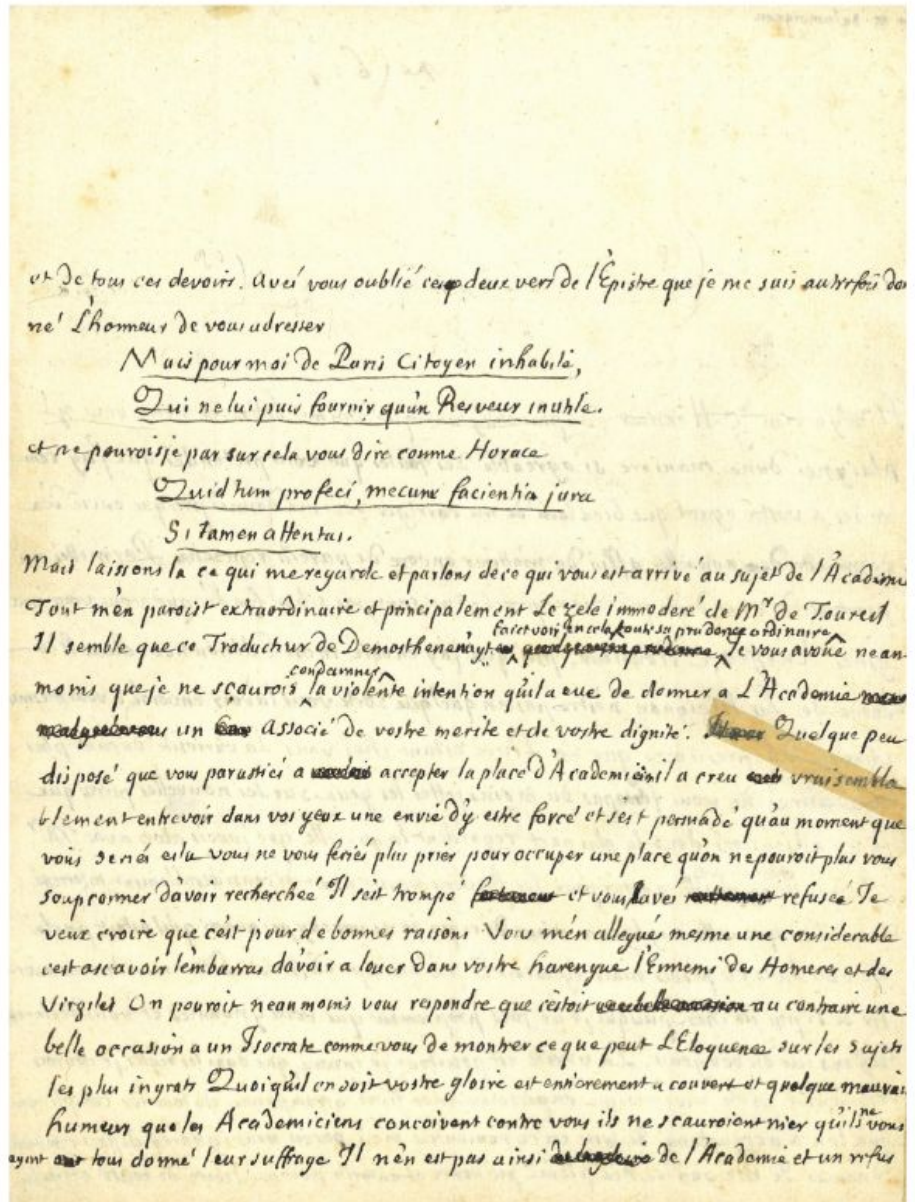 et de tous ces devoirs. Avés vous oublié ces deux vers de l'Épistre que je me suis autrefois don
né L'honneur de vous adresser
Mais pour moi de Paris Citoyen inhabile,
Qui ne lui puis fournir qu'un Resveur inutile.
et ne pouroisje par sur cela vous dire comme Horace
Quid tum profeci, mecum facientia jura
Si tamen attentas.
Mais laissons la ce qui me regarde et parlons de ce qui vous est arrivé au sujet de l'Académie
Tout m'en paroist extraordinaire et principalement Le zele immoderé de Mr de Toureil
faict voir en cela toute sa prudence ordinaire
Il semble que ce Traducteur de Demosthene n'ayt Je vous avoüe nean
condamner
moins que je ne sçaurois la violente intention qu'il a eue de donner a L'Académie
un Associé de vostre merite et de vostre dignité. Quelque peu
disposé que vous parussiés a accepter la place d'Academicien il a creu vraisembla
blement entrevoir dans vos yeux une envie d'y estre forcé et s'est persuadé qu'au moment que
vous seriés eslu vous ne vous feriés plus prier pour occuper une place qu'on ne pouroit plus vous
soupconner d'avoir recherchée Il s'est trompé et vous l'avés refusée Je
veux croire que c'est pour de bonnes raisons Vous m'en allegués mesme une considerable
c'est ascavoir l'embarras d'avoir a louer dans vostre harengue l'Ennemi des Homeres et des
Virgiles On pouroit neanmoins vous respondre que c'estoit au contraire une
belle occasion a un Isocrate comme vous de montrer ce que peut L'Eloquence sur les sujets
les plus ingrats Quoiqu'il en soit vostre gloire est entierement a couvert et quelque mauvaise
humeur que les Academiciens concoivent contre vous ils ne scauroient nier qu'ils ne vous
ayent tous donné leur suffrage Il n'en est pas ainsi de l'Academie et un refus